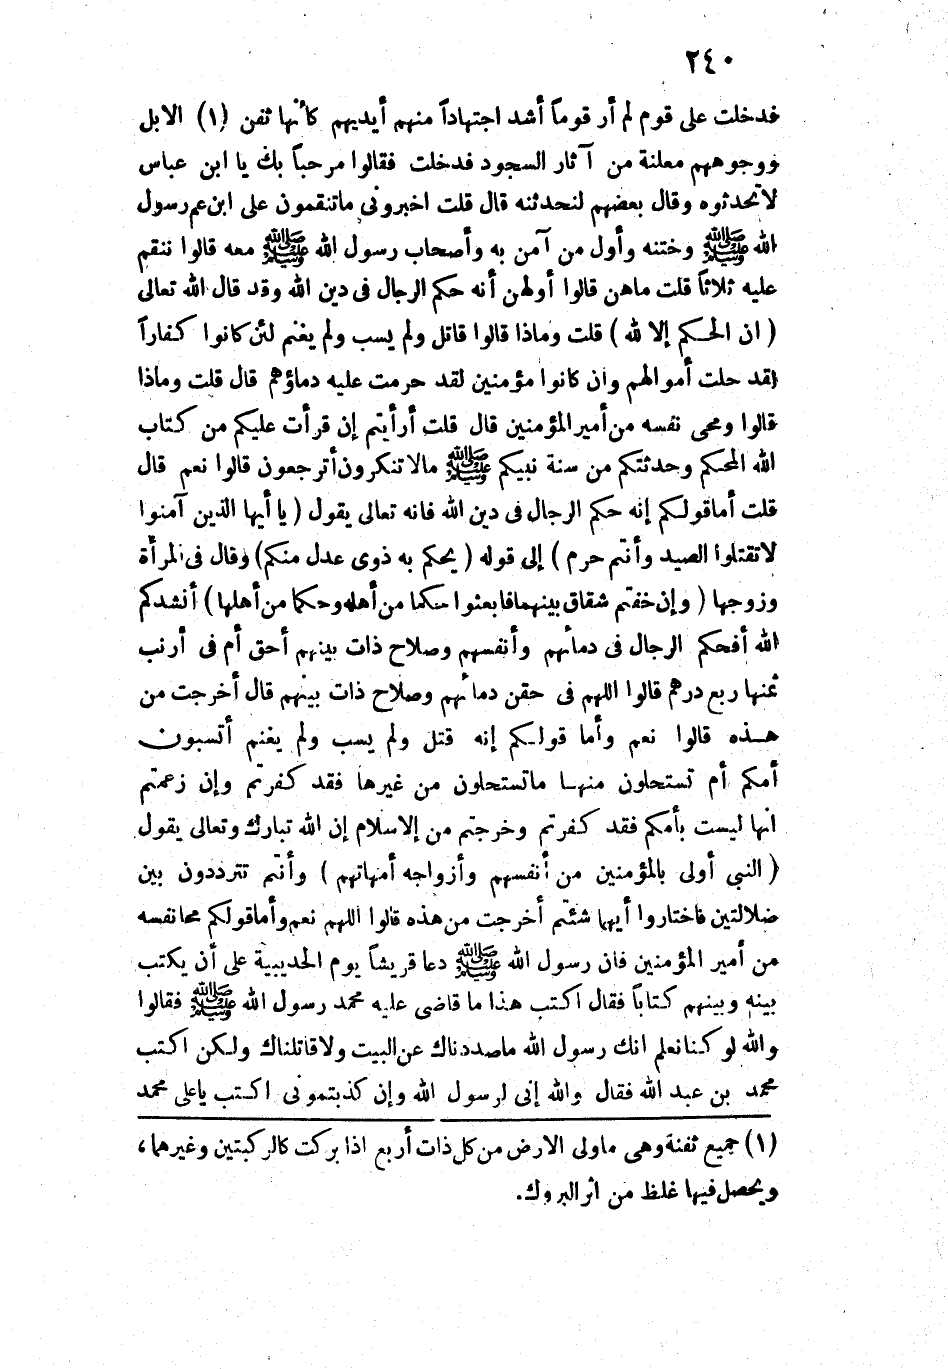 ٢٤٠
فدخلت على قوم لم أر قوماً أشد اجتهاداً منهم أيديهم كأنها ثفن (١) الابل
ووجوههم معلنة من آثار السجود فدخلت فقالوا مرحباً بك يا ابن عباس
لاتحدثوه وقال بعضهم لنحدثنه قال قلت اخبرونى ماتنقمون على ابن عم رسول
الله ﷺ وختنه وأول من آمن به وأصحاب رسول الله ﷺ معه قالوا ننقم
عليه ثلاثاً قلت ماهن قالوا أولهن أنه حكم الرجال فى دين الله وقد قال الله تعالى
( ان الحكم إلا لله ) قلت وماذا قالوا قاتل ولم يسب ولم يغنم لئن كانوا كفاراً
لقد حلت أموالهم وان كانوا مؤمنين لقد حرمت عليه دماؤهم قال قلت وماذا
قالوا ومحى نفسه من أمير المؤمنين قال قلت أرأيتم إن قرأت عليكم من كتاب
الله المحكم وحدثتكم من سنة نبيكم ﷺ مالا تنكرون أترجعون قالوا نعم قال
قلت أما قولكم إنه حكم الرجال فى دين الله فانه تعالى يقول ( يا أيها الذين آمنوا
لاتقتلوا الصيد وأنتم حرم ) إلى قوله ( يحكم به ذوى عدل منكم) وقال فى المرأة
وزوجها ( وإن خفتم شقاق بينهما فابعثوا حكما من أهله وحكما من أهلها ) أنشدكم
الله أفحكم الرجال فى دمائهم وأنفسهم وصلاح ذات بينهم أحق أم فى أرنب
ثمنها ربع درهم قالوا اللهم فى حقن دمائهم وصلاح ذات بينهم قال أخرجت من
هذه قالوا نعم وأما قولكم إنه قتل ولم يسب ولم يغنم أتسبون
أمكم أم تستحلون منها ماتستحلون من غيرها فقد كفرتم وإن زعمتم
انها ليست بأمكم فقد كفرتم وخرجتم من الاسلام إن الله تبارك وتعالى يقول
( النبى أولى بالمؤمنين من أنفسهم وأزواجه أمهاتهم ) وأنتم تترددون بين
ضلالتين فاختاروا أيها شئتم أخرجت من هذه قالوا اللهم نعم وأما قولكم محا نفسه
من أمير المؤمنين فان رسول الله ﷺ دعا قريشاً يوم الحديبية على أن يكتب
بينه وبينهم كتاباً فقال اكتب هذا ما قاضى عليه محمد رسول الله ﷺ فقالوا
والله لو كنا نعلم انك رسول الله ماصددناك عن البيت ولا قاتلناك ولكن اكتب
محمد بن عبد الله فقال والله إنى لرسول الله وإن كذبتمونى اكتب ياعلى محمد
(١) جميع ثفنة وهى ماولى الارض من كل ذات أربع اذا بركت كالركبتين وغيرهما،
ويحصل فيها غلظ من اثر البروك.